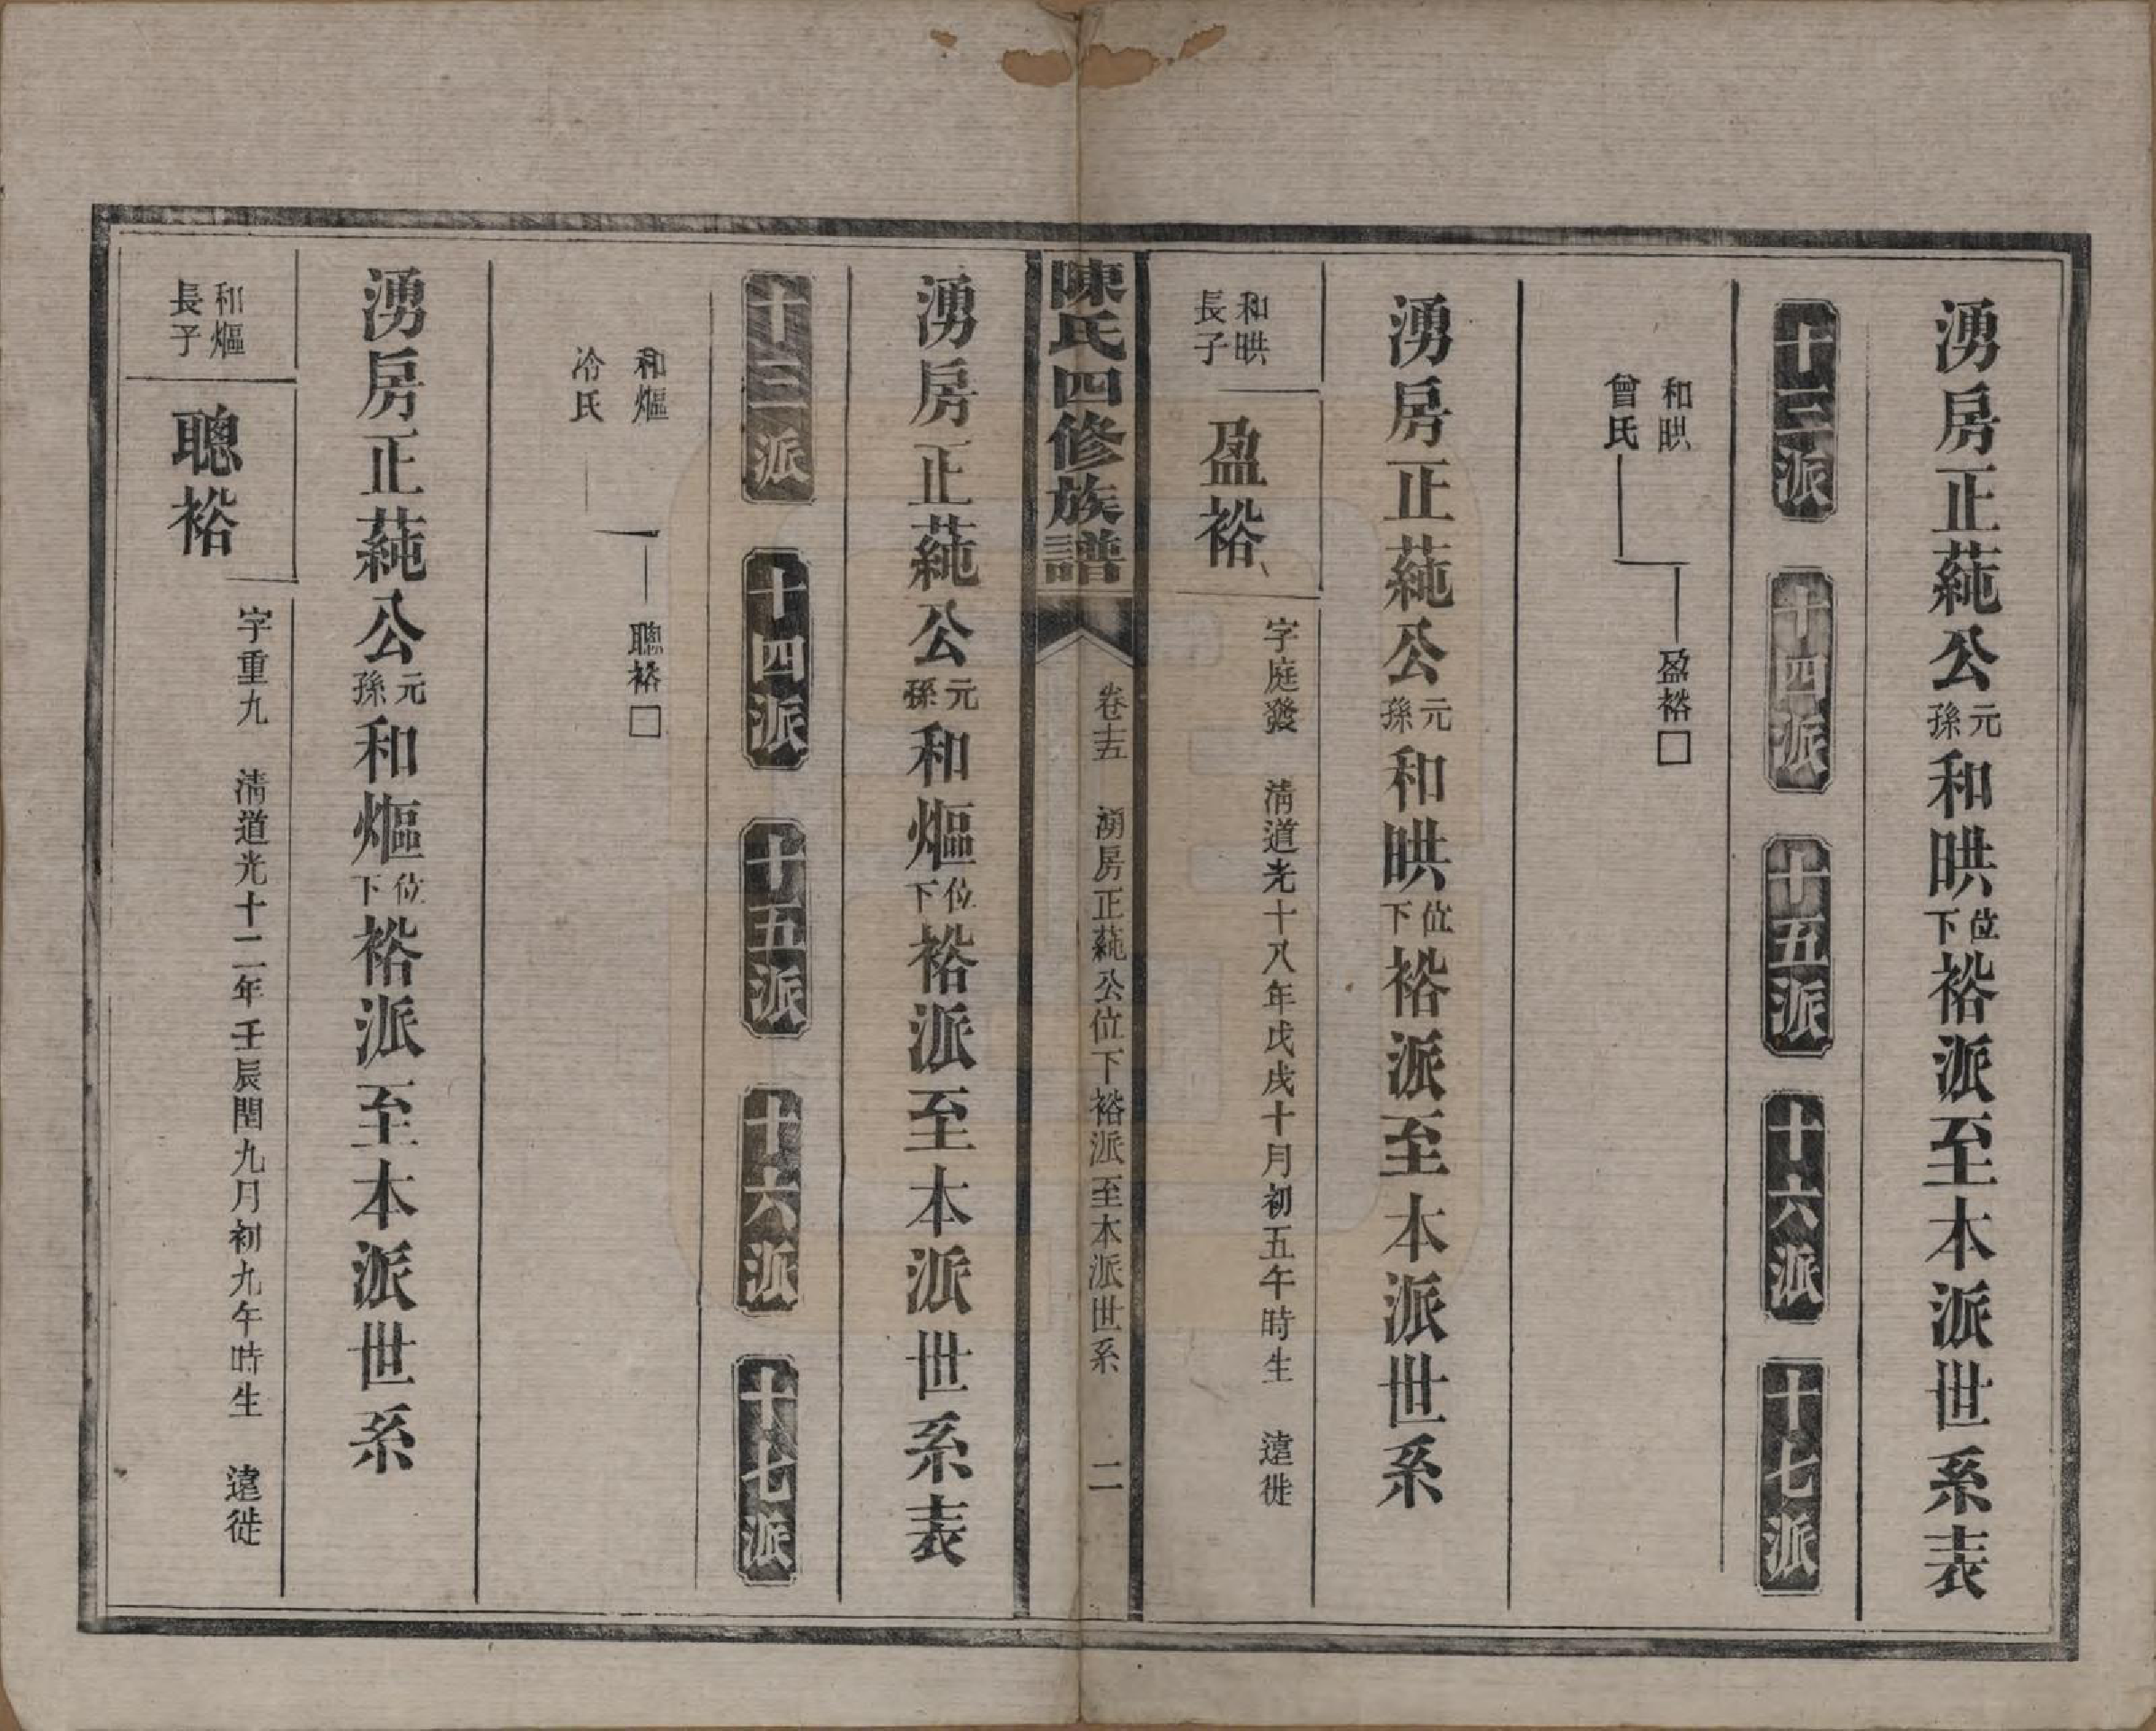 湧房正蒓公元孫和晎位下裕派至本派世系表
十三派
十四派
十五派
十六派
十七派
和晎
曾氏
盈裕□
湧房正蒓公元孫和晎位下裕派至本派世系
和晎
長子
盈裕
字庭發 清道光十八年戊戌十月初五午時生 遠徙
陳氏四修族譜
卷十五 湧房正蒓公位下裕派至本派世系 二
湧房正蒓公元孫和熰位下裕派至本派世系表
十三派
十四派
十五派
十六派
十七派
和熰
冷氏
聰裕□
湧房正蒓公元孫和熰位下裕派至本派世系
和熰
長子
聰裕
字重九 清道光十二年壬辰閏九月初九午時生 遠徙